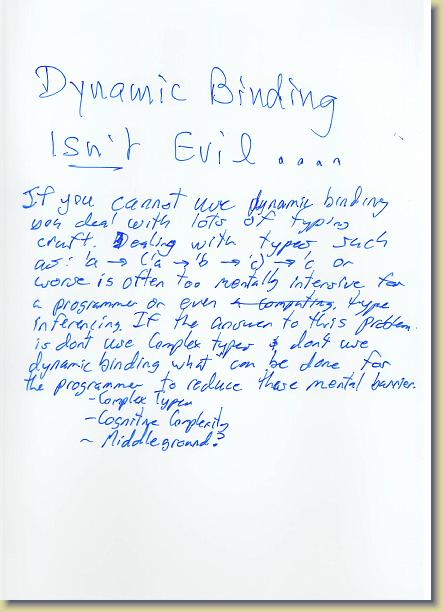 Dynamic Binding
Isn't Evil ....
If you cannot use dynamic binding
you deal with lots of typing
cruft. Dealing with types such
as: 'a → ('a → 'b → 'c) → 'c or
worse is often too mentally intensive for
a programmer or even a computing. type
inferencing. If the answer to this problem
is dont use complex types & dont use
dynamic binding what can be done for
the programmer to reduce these mental barrier.
-Complex Types
-Cognitive Complexity
~ Middleground?